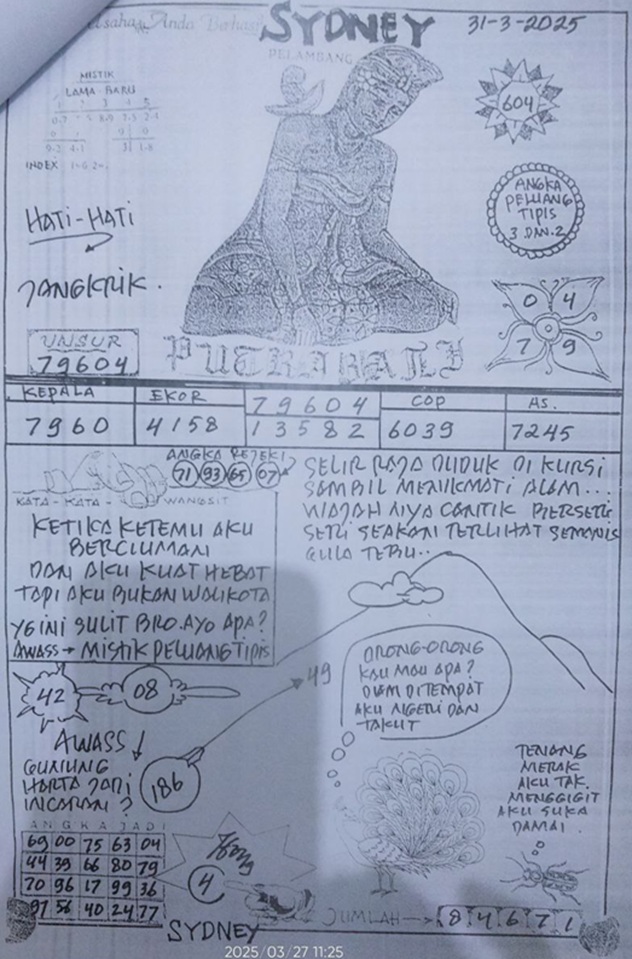 Anda
SYDNEY
31-3-2025
PELAMBANG
MISTIK
LAMA BARU
INDEX
604
ANGKA
PELUANG
TIPIS
3 DAN.2
HATI-HATI
JANGKRIK.
UNSUR
79604
0 4
7 9
KEPALA
EKOR
79604
COP
AS.
7960
4158
13582
6039
7245
ANGKA REJEKI
71 93 65 07
SELIR RAJA DUDUK DI KURSI
SAMBIL MENIKMATI ALAM...
WAJAH NYA CANTIK BERSERI
SERI SEAKAN TERLIHAT SEMANIS
GULA TEBU..
KATA - KATA - WANGSIT
KETIKA KETEMU AKU
BERCIUMAN
DAN AKU KUAT HEBAT
TAPI AKU BUKAN WALIKOTA
YG INI SULIT BRO.AYO APA?
AWASS → MISTIK PELUANG TIPIS
42
08
49
ORONG-ORONG
KAU MAU APA?
DIAM DITEMPAT
AKU NGERI DAN
TAKUT
AWASS
GUNUNG
HARTA JADI
INCARAN?
186
TENANG
MERAK
AKU TAK
MENGGIGIT
AKU SUKA
DAMAI.
ANGKA JADI
69 00 75 63 04
44 39 66 80 79
70 96 17 99 36
97 56 40 24 77
4
JUMLAH → 8 4 6 7 1
SYDNEY
2025/03/27 11:25